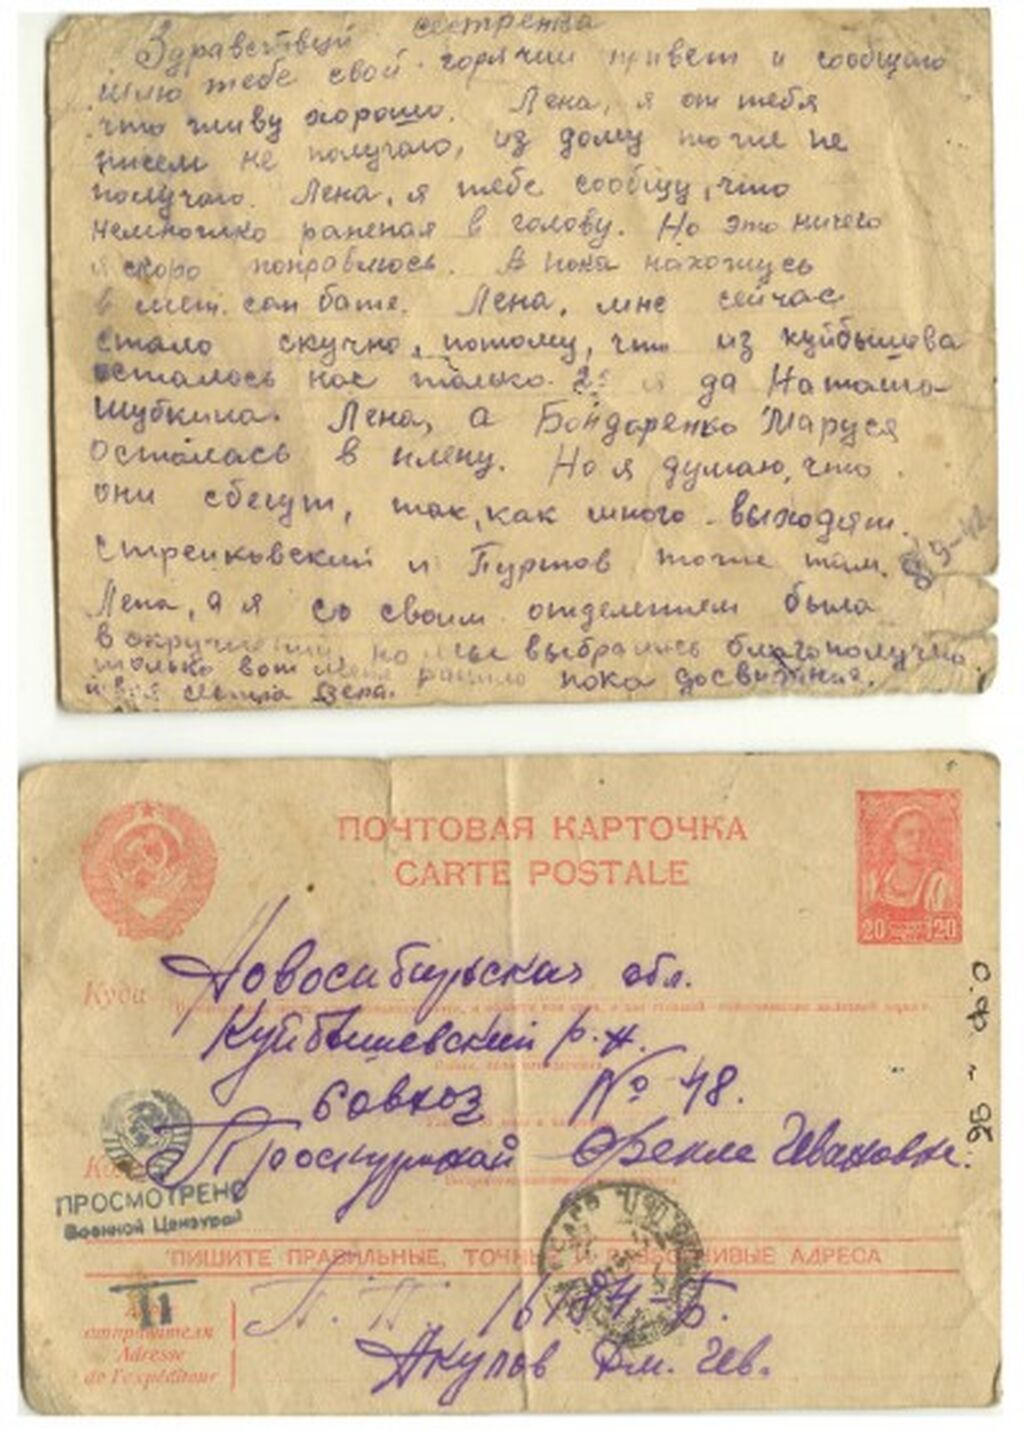 Здравствуй сестренка
шлю тебе свой горячий привет и сообщаю
что живу хорошо. Лена, я от тебя
писем не получаю, из дому тоже не
получаю. Лена, я тебе сообщу, что
немножко раненая в голову. Но это ничего
я скоро поправлюсь. А пока нахожусь
в мет. сан бате. Лена, мне сейчас
стало скучно, потому, что из куйбышова
осталось нас только 2: я да Наташа
Шубкина. Лена, а Бондаренко Маруся
осталась в плену. Но я думаю, что
они сбегут, так, как много выходят.
Стрейковский и Пуртов тоже там.
9-42
Лена, а я со своим отделением была
в окружении, но мы выбрались благополучно
только вот меня ранило пока досвидания.
твоя сестра Вера.
ПОЧТОВАЯ КАРТОЧКА
CARTE POSTALE
20 20
Куда Новосибирская обл.
Куйбышевский р-н.
Совхоз № 48.
Кому Проскуриной Фекле Ивановне.
ПРОСМОТРЕНО
Военной Цензурой
ПИШИТЕ ПРАВИЛЬНЫЕ, ТОЧНЫЕ И РАЗБОРЧИВЫЕ АДРЕСА
11
отправителя
Adresse
de l'expéditeur
П. П. 16184-Б.
Акулов Дм. Ив.